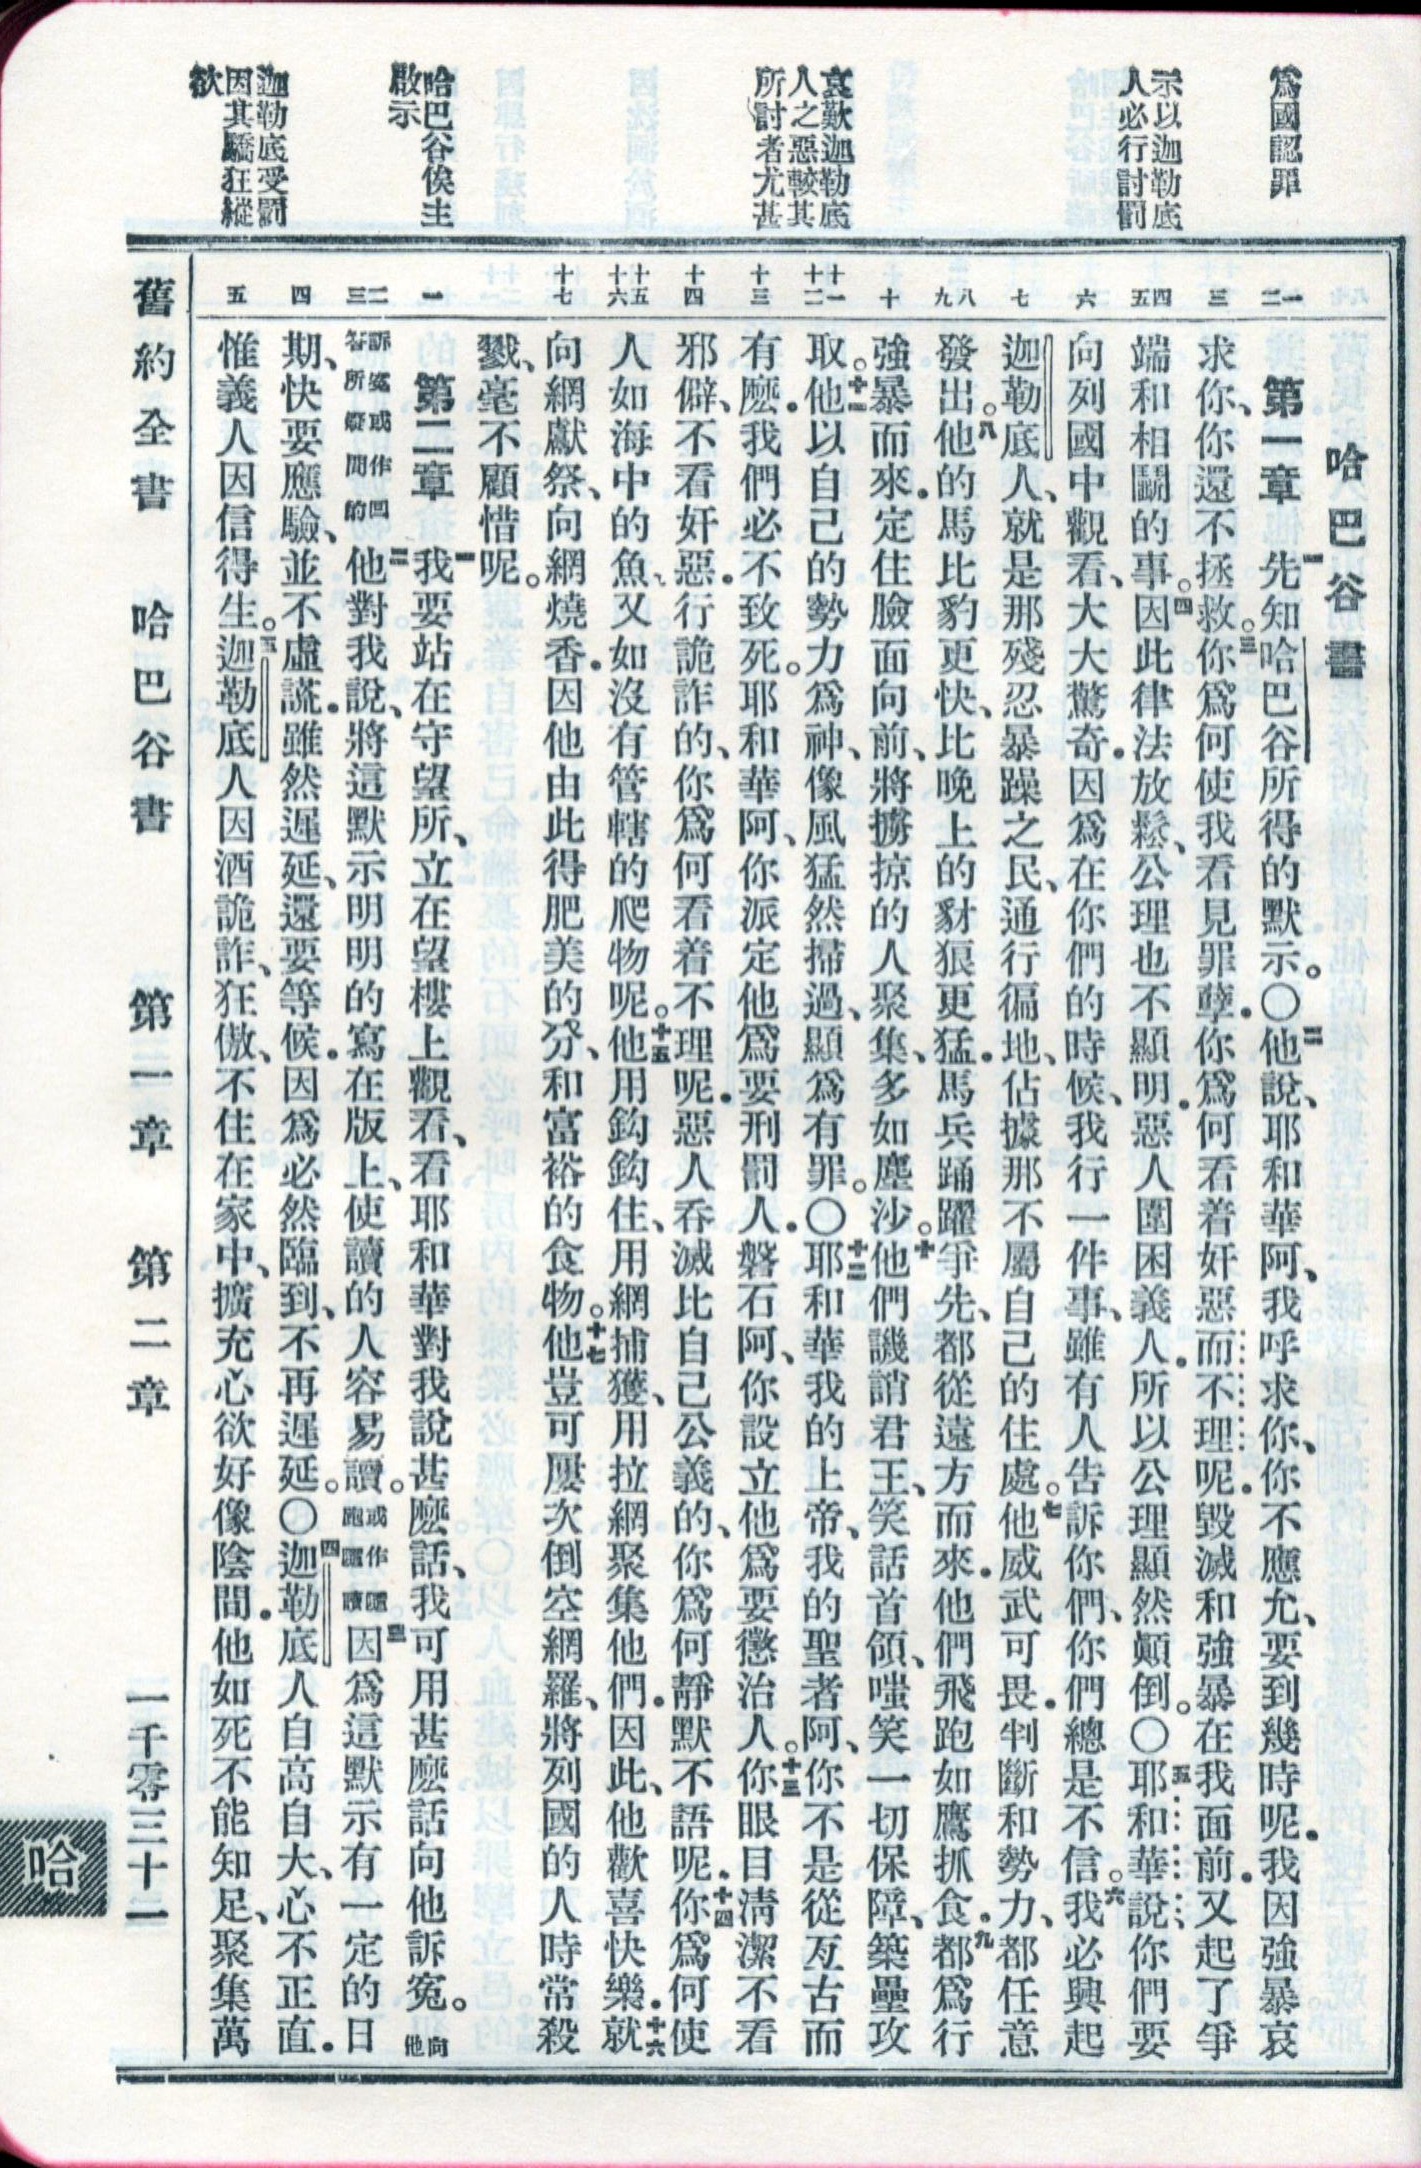 爲國認罪
示以迦勒底
人必行討罰
哀歎迦勒底
人之惡較其
所討者尤甚
哈巴谷俟主
啟示
迦勒底受罰
因其驕狂縱
欲
哈巴谷書
一二
第一章 一先知哈巴谷所得的默示。〇二他說、耶和華阿、我呼求你、你不應允、要到幾時呢．我因強暴哀
三
求你、你還不拯救。三你爲何使我看見罪孽．你爲何看着奸惡而不理呢．毀滅和強暴在我面前．又起了爭
四五
端和相鬬的事。四因此律法放鬆、公理也不顯明．惡人圍困義人．所以公理顯然顛倒。〇五耶和華說、你們要
六
向列國中觀看、大大驚奇．因爲在你們的時候、我行一件事、雖有人告訴你們、你們總是不信。六我必興起
七
迦勒底人、就是那殘忍暴躁之民、通行徧地、佔據那不屬自己的住處。七他威武可畏．判斷和勢力、都任意
八九
發出。八他的馬比豹更快、比晚上的豺狼更猛．馬兵踊躍爭先、都從遠方而來．他們飛跑如鷹抓食．九都爲行
十
強暴而來．定住臉面向前、將擄掠的人聚集、多如塵沙。十他們譏誚君王、笑話首領、嗤笑一切保障、築壘攻
十一十二
取。十一他以自己的勢力爲神、像風猛然掃過、顯爲有罪。〇十二耶和華我的上帝、我的聖者阿、你不是從亙古而
十三
有麽．我們必不致死。耶和華阿、你派定他爲要刑罰人．磐石阿、你設立他爲要懲治人。十三你眼目清潔不看
十四
邪僻、不看奸惡．行詭詐的、你爲何看着不理呢．惡人吞滅比自己公義的、你爲何靜默不語呢．十四你爲何使
十五十六
人如海中的魚、又如沒有管轄的爬物呢。十五他用鈎鈎住、用網捕獲、用拉網聚集他們．因此、他歡喜快樂．十六就
十七
向網獻祭、向網燒香．因他由此得肥美的分、和富裕的食物。十七他豈可屢次倒空網羅、將列國的人時常殺
戮、毫不顧惜呢。
一
第二章 一我要站在守望所、立在望樓上觀看、看耶和華對我說甚麽話、我可用甚麽話向他訴冤。向他
二三
訴冤或作回答所疑問的二他對我說、將這默示明明的寫在版上、使讀的人容易讀。或作隨跑隨讀三因爲這默示有一定的日
四
期、快要應驗、並不虛謊．雖然遲延、還要等候．因爲必然臨到、不再遲延。〇四迦勒底人自高自大、心不正直．
五
惟義人因信得生。五迦勒底人因酒詭詐、狂傲、不住在家中、擴充心欲好像陰間．他如死不能知足、聚集萬
舊約全書 哈巴谷書 第一章 第二章 一千零三十二
哈